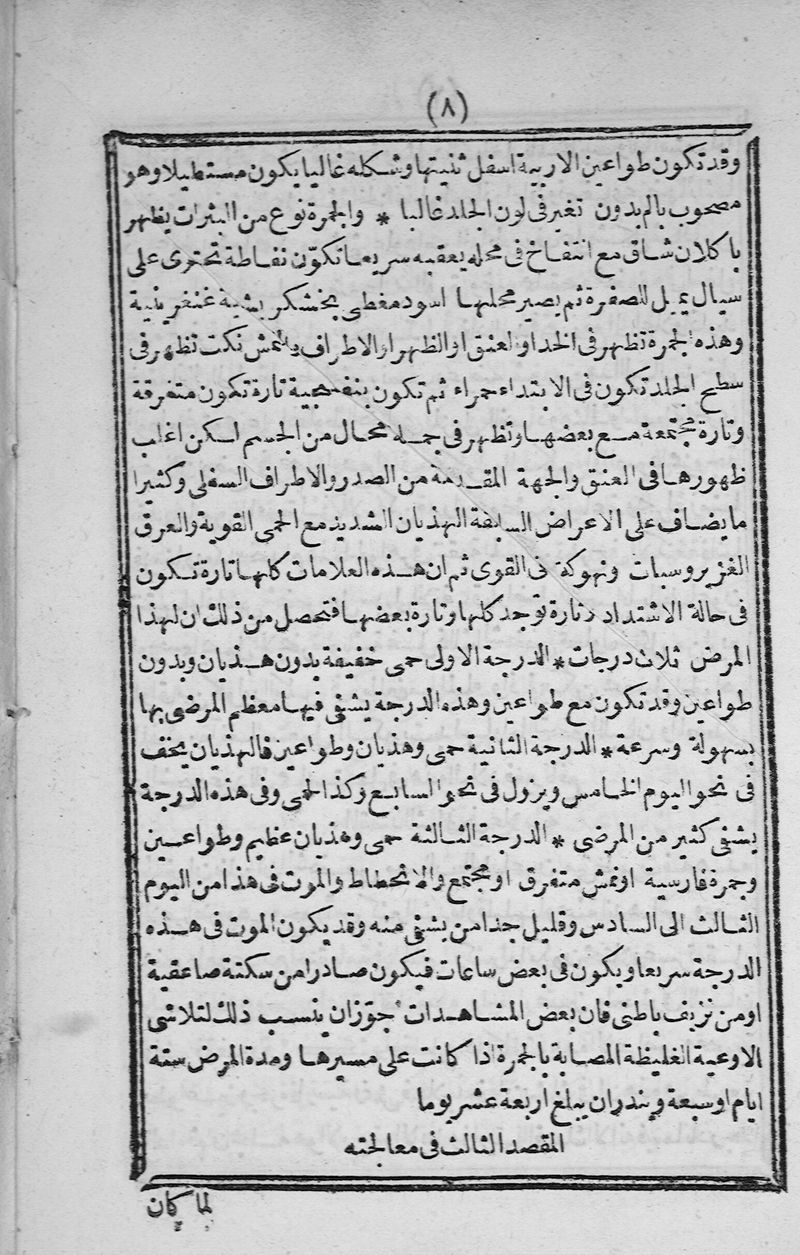 (٨)
وقد تكون طواعين الاربية اسفل ثنيتها وشكله غاليا يكون مستطيلا وهو
مصحوب بالم بدون تغير فى لون الجلد غالبا * والجمرة نوع من البثرات يظهر
باكلان شاق مع انتفاخ فى محله يعقبه سريعا تكوّن نفاطة تحتوى على
سيال يميل للصفرة ثم يصير محلها اسود مغطى بخشكريشية غنغرينية
وهذه الجمرة تظهر فى الخد او العنق او الظهر او الاطراف والنمش نكت تظهر فى
سطح الجلد تكون فى الابتداء حمراء ثم تكون بنفسجية تارة تكون متفرقة
وتارة مجتمعة مع بعضها وتظهر فى جملة محال من الجسم لكن اغلب
ظهورها فى العنق والجهة المقدمة من الصدر والاطراف السفلى وكثيرا
ما يضاف على الاعراض السابقة الهذيان الشديد مع الحمى القوية والعرق
الغزير وسبات ونهوكة فى القوى ثم ان هذه العلامات كلها تارة تكون
فى حالة الاشتداد وتارة توجد كلها وتارة بعضها فتحصل من ذلك ان لهذا
المرض ثلاث درجات * الدرجة الاولى حمى خفيفة بدون هذيان وبدون
طواعين وقد تكون مع طواعين وهذه الدرجة يشفى فيها معظم المرضى بها
بسهولة وسرعة * الدرجة الثانية حمى وهذيان وطواعين فالهذيان يخف
فى نحو اليوم الخامس ويزول فى نحو السابع وكذا الحمى وفى هذه الدرجة
يشفى كثير من المرضى * الدرجة الثالثة حمى وهذيان عظيم وطواعين
وجمرة فارسية او نمش متفرق او مجتمع والانحطاط والموت فى هذا من اليوم
الثالث الى السادس وقليل جدا من يشفى منه وقد يكون الموت فى هذه
الدرجة سريعا ويكون فى بعض ساعات فيكون صادرا من سكتة صاعقية
او من نزيف باطنى فان بعض المشاهدات جوّز ان ينسب ذلك لتلاشى
الاوعية الغليظة المصابة بالجمرة اذا كانت على مسيرها ومدة المرض ستة
ايام او سبعة ويندر ان يبلغ اربعة عشر يوما
المقصد الثالث فى معالجته
لما كان